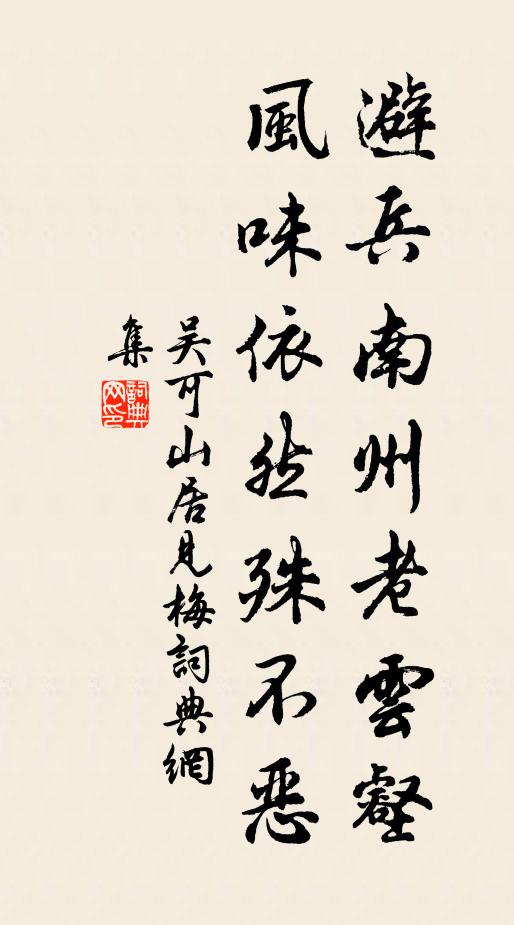 避兵南州老雲壑
風味依然殊不惡
吴可山居見梅詞典網
集
詞典
网印